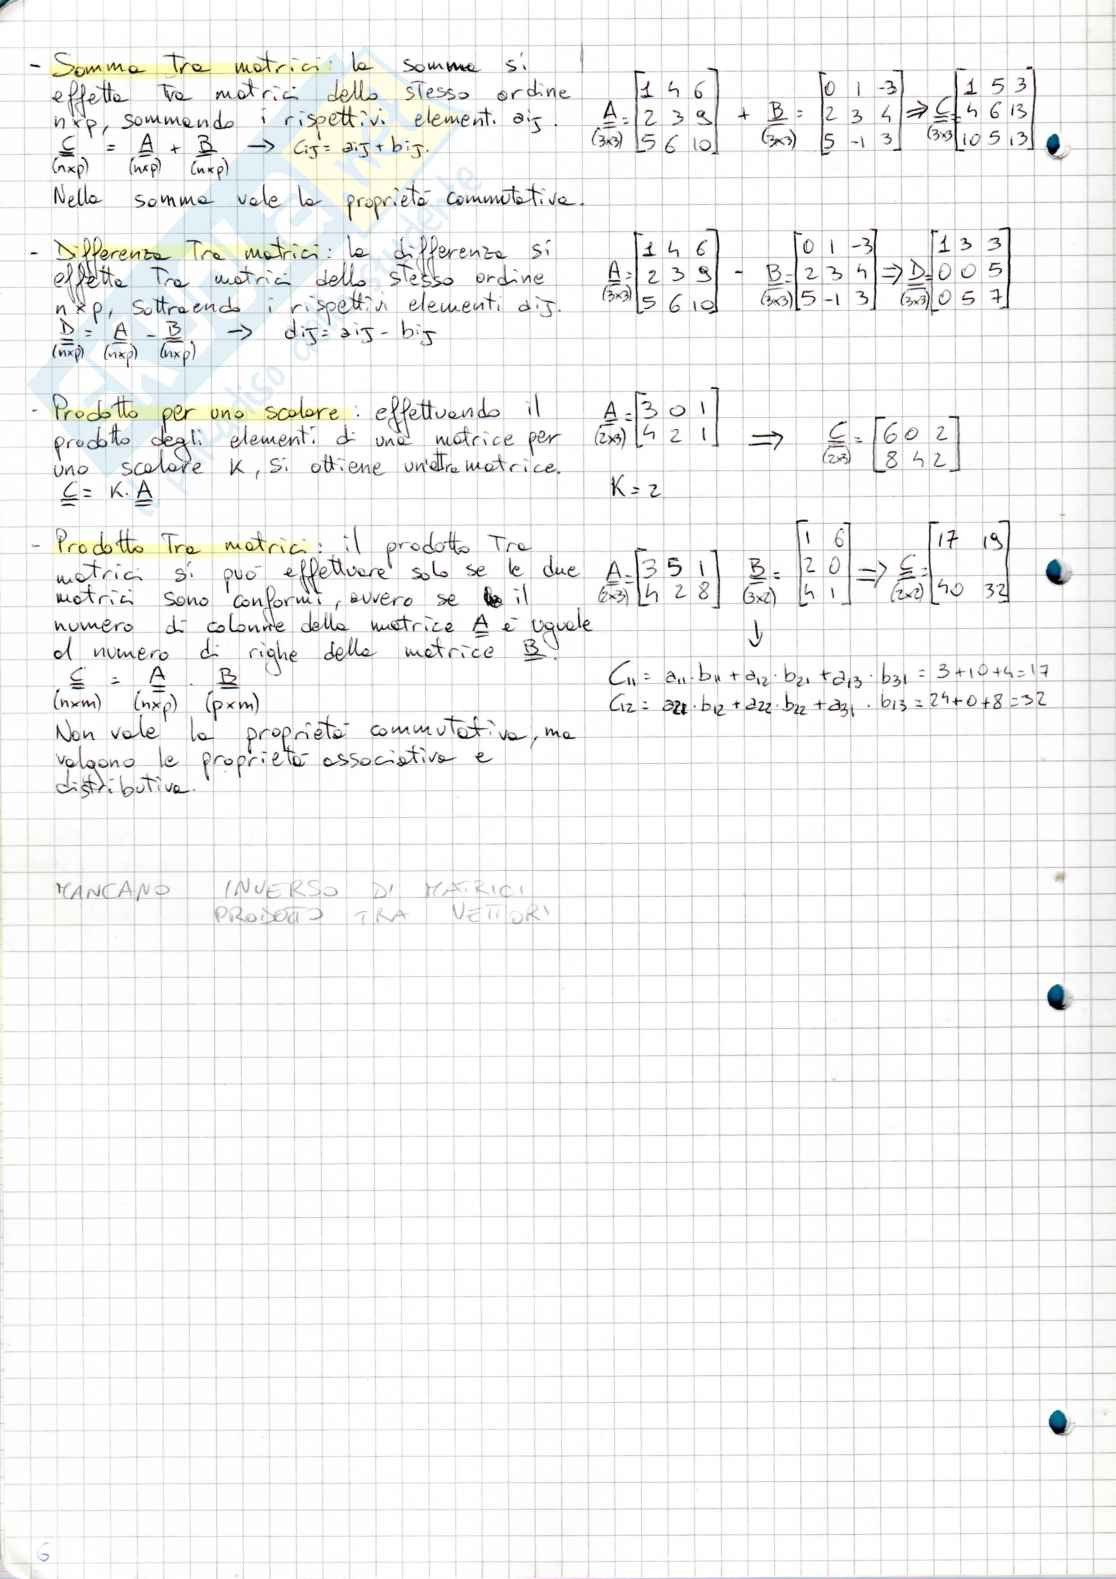 - Somma tra matrici: la somma si
effetta tra matrici dello stesso ordine
n×p, sommando i rispettivi elementi aij.
C = A + B → cij = aij + bij.
(n×p) (n×p) (n×p)
Nella somma vale la proprietà commutativa.
A = [1 4 6 + B = [0 1 -3 ⇒ C = [1 5 3
(3×3) 2 3 9 (3×3) 2 3 4 (3×3) 4 6 13
5 6 10] 5 -1 3] 10 5 13]
- Differenza tra matrici: la differenza si
effetta tra matrici dello stesso ordine
n×p, sottraendo i rispettivi elementi aij.
D = A - B → dij = aij - bij
(n×p) (n×p) (n×p)
A = [1 4 6 - B = [0 1 -3 ⇒ D = [1 3 3
(3×3) 2 3 9 (3×3) 2 3 4 (3×3) 0 0 5
5 6 10] 5 -1 3] 0 5 7]
- Prodotto per uno scalare: effettuando il
prodotto degli elementi di una matrice per
uno scalare K, si ottiene un'altra matrice.
C = K · A
A = [3 0 1 ⇒ C = [6 0 2
(2×3) 4 2 1] (2×3) 8 4 2]
K = 2
- Prodotto tra matrici: il prodotto tra
matrici si può effettuare solo se le due
matrici sono conformi, ovvero se il
numero di colonne della matrice A è uguale
al numero di righe della matrice B.
C = A · B
(n×m) (n×p) (p×m)
Non vale la proprietà commutativa, ma
valgono le proprietà associativa e
distributiva.
A = [3 5 1 B = [1 6 ⇒ C = [17 19
(2×3) 4 2 8] (3×2) 2 0 (2×2) 40 32]
4 1]
↓
C11 = a11 · b11 + a12 · b21 + a13 · b31 = 3+10+4=17
C12 = a21 · b12 + a22 · b22 + a31 · b13 = 24+0+8=32
MANCANO INVERSO DI MATRICI
PRODOTTO TRA VETTORI
6